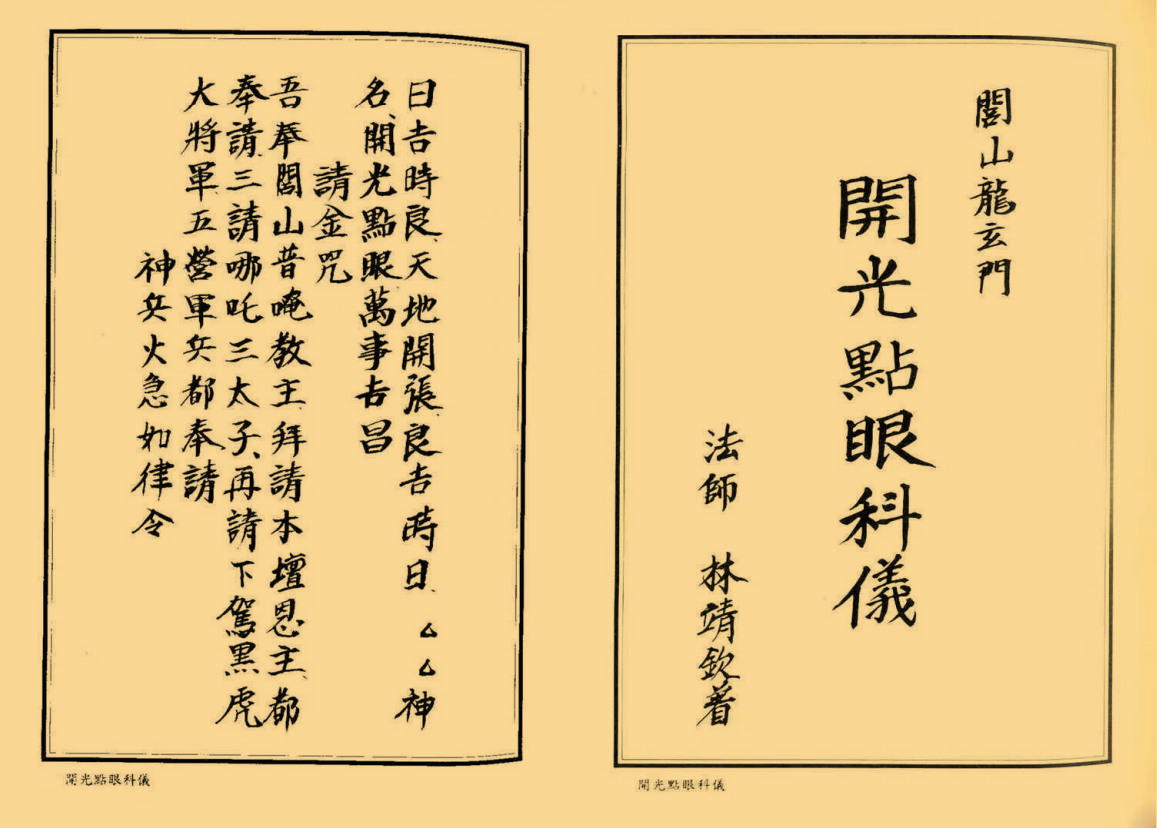 閭山龍玄門
開光點眼科儀
法師 林靖欽着
開光點眼科儀
日吉時良天地開張良吉時日ㄙㄙ神
名開光點眼萬事吉昌
請金咒
吾奉閭山普唵教主拜請本壇恩主都
奉請三請哪吒三太子再請下駕黑虎
大將軍五營軍兵都奉請
神兵火急如律令
開光點眼科儀